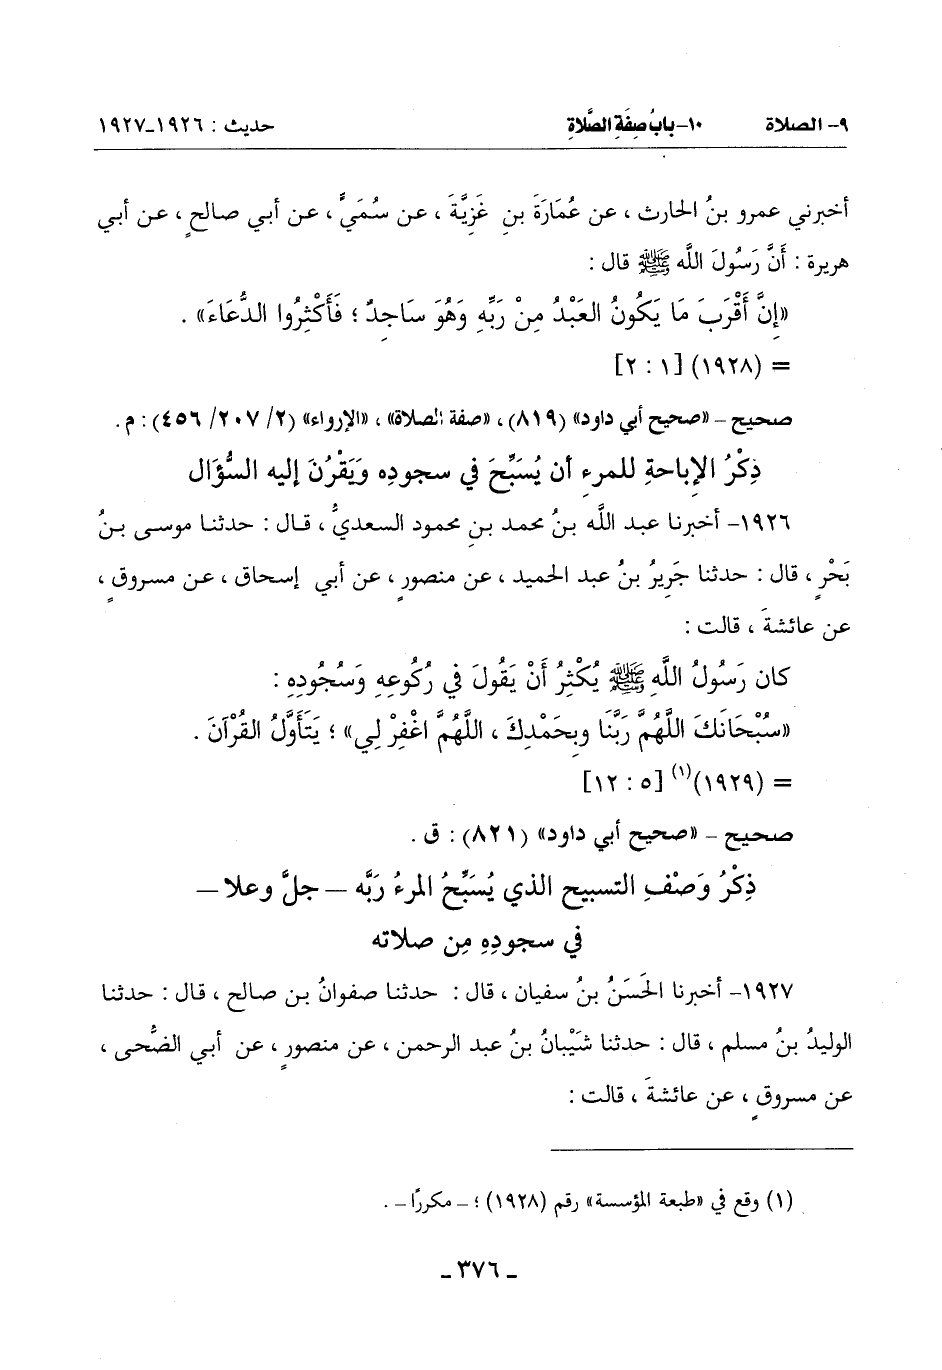 ٩- الصلاة ١٠- بابُ صِفَةِ الصَّلاةِ حديث : ١٩٢٦-١٩٢٧
أخبرني عمرو بنُ الحارث ، عن عُمَارَةَ بنِ غَزِيَّةَ ، عن سُمَيٍّ ، عن أبي صالحٍ ، عن أبي
هريرة : أَنَّ رَسُولَ اللَّه ﷺ قال :
«إِنَّ أَقْرَبَ مَا يَكُونُ العَبْدُ مِنْ رَبِّهِ وَهُوَ سَاجِدٌ ؛ فَأَكْثِرُوا الدُّعَاءَ» .
= (١٩٢٨) [١ : ٢]
صحيح - «صحيح أبي داود» (٨١٩) ، «صفة الصلاة» ، «الإرواء» (٢/ ٢٠٧/ ٤٥٦) : م .
ذِكْرُ الإباحةِ للمرءِ أن يُسَبِّحَ في سجودِه ويَقْرُنَ إليه السُّؤَال
١٩٢٦- أخبرنا عبد اللَّه بنُ محمد بنِ محمود السعديُّ ، قال : حدثنا موسى بنُ
بَحْرٍ ، قال : حدثنا جَرِيرُ بنُ عبد الحميد ، عن منصورٍ ، عن أبي إسحاق ، عن مسروقٍ ،
عن عائشةَ ، قالت :
كان رَسُولُ اللَّهِ ﷺ يُكْثِرُ أَنْ يَقُولَ في رُكُوعِهِ وَسُجُودِهِ :
«سُبْحَانَكَ اللَّهُمَّ رَبَّنَا وبِحَمْدِكَ ، اللَّهُمَّ اغْفِرْ لِي» ؛ يَتَأَوَّلُ القُرْآنَ .
= (١٩٢٩)(١) [٥ : ١٢]
صحيح - «صحيح أبي داود» (٨٢١) : ق .
ذِكْرُ وَصْفِ التسبيح الذي يُسَبِّحُ المرءُ رَبَّه - جلَّ وعلا -
في سجودِهِ مِن صلاته
١٩٢٧- أخبرنا الحَسَنُ بنُ سفيان ، قال : حدثنا صفوانُ بن صالح ، قال : حدثنا
الوليدُ بنُ مسلم ، قال : حدثنا شَيْبَانُ بنُ عبد الرحمن ، عن منصورٍ ، عن أبي الضُّحى ،
عن مسروقٍ ، عن عائشةَ ، قالت :
(١) وقع في «طبعة المؤسسة» رقم (١٩٢٨) ؛ - مكررًا - .
- ٣٧٦ -